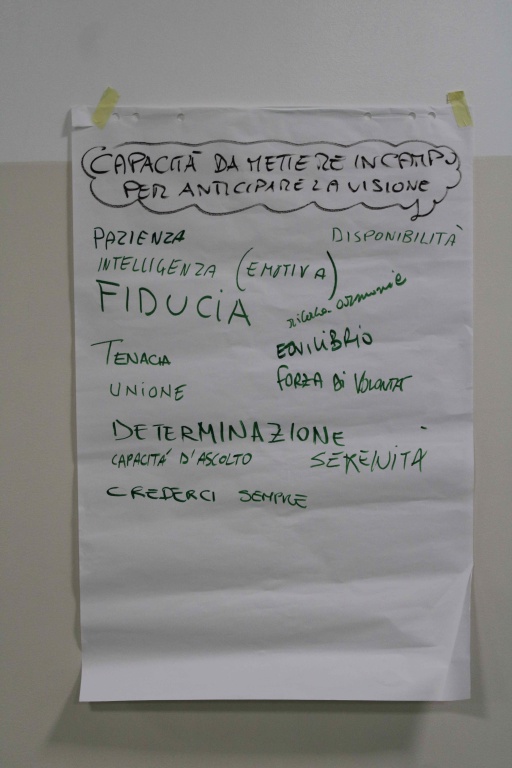 CAPACITÀ DA METTERE IN CAMPO
PER ANTICIPARE LA VISIONE
PAZIENZA
DISPONIBILITÀ
INTELLIGENZA (EMOTIVA)
FIDUCIA
ricerca armonie
TENACIA
EQUILIBRIO
UNIONE
FORZA DI VOLONTÀ
DETERMINAZIONE
CAPACITÁ D'ASCOLTO
SERENITÀ
CREDERCI SEMPRE